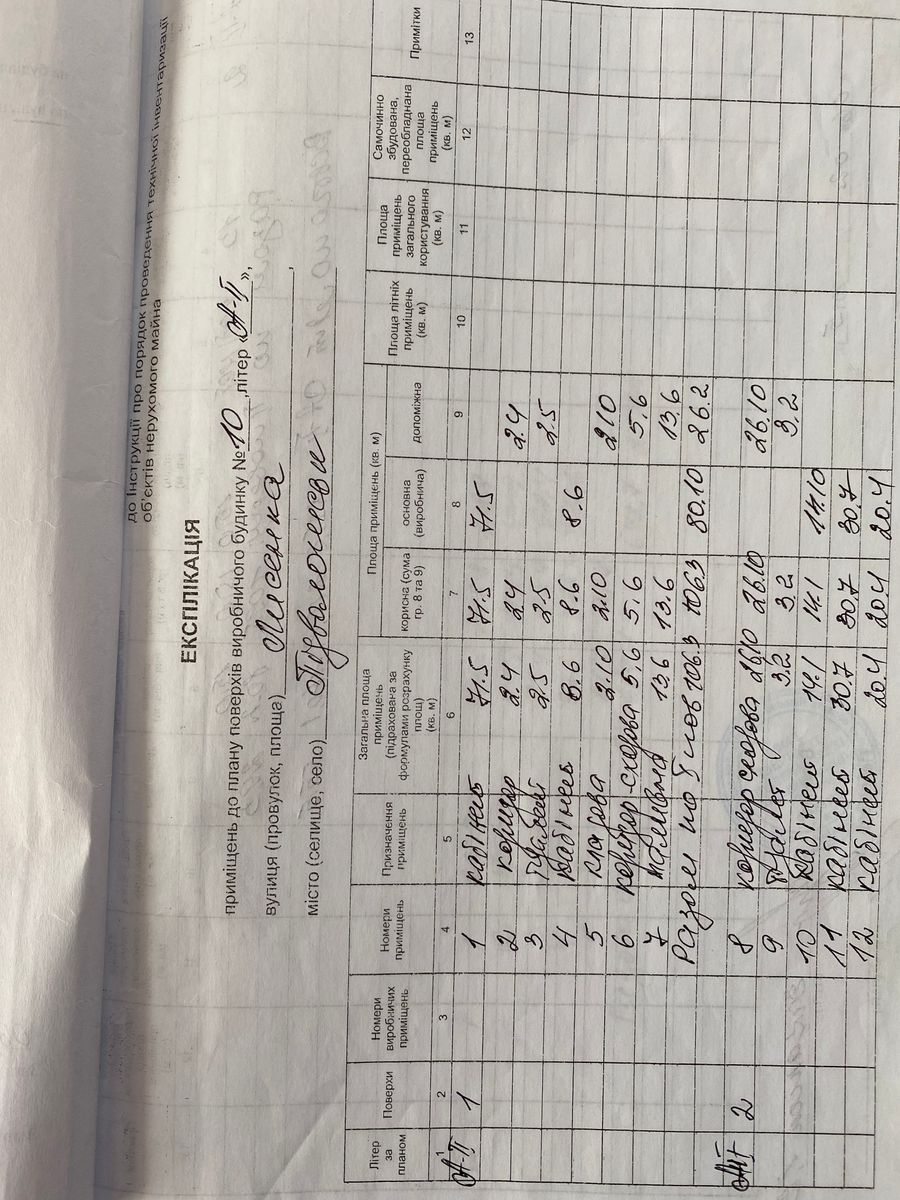 до Інструкції про порядок проведення технічної інвентаризації
об'єктів нерухомого майна
ЕКСПЛІКАЦІЯ
приміщень до плану поверхів виробничого будинку № 10 ,літер «А-ІІ»,
вулиця (провулок, площа) Лисенка ,
місто (селище, село) Підволочиськ
Літер за планом | Поверхи | Номери виробничих приміщень | Номери приміщень | Призначення приміщень | Загальна площа приміщень (підрахована за формулами розрахунку площ) (кв. м) | Площа приміщень (кв. м) | корисна (сума гр. 8 та 9) | основна (виробнича) | допоміжна | Площа літніх приміщень (кв. м) | Площа приміщень загального користування (кв. м) | Самочинно збудована, переобладнана площа приміщень (кв. м) | Примітки
1 | 2 | 3 | 4 | 5 | 6 | 7 | 8 | 9 | 10 | 11 | 12 | 13
А-ІІ | 1 | 1 | кабінет | 71.5 | 71.5 | 71.5
2 | коридор | 2.4 | 2.4 | 2.4
3 | туалет | 2.5 | 2.5 | 2.5
4 | кабінет | 8.6 | 8.6 | 8.6
5 | кладова | 2.10 | 2.10 | 2.10
6 | коридор-сходова | 5.6 | 5.6 | 5.6
7 | 13.6 | 13.6 | 13.6
Разом по | 106.3 | 106.3 | 80.10 | 26.2
2 | 8 | коридор сходова | 26.10 | 26.10 | 26.10
9 | туалет | 3.2 | 3.2 | 3.2
10 | кабінет | 14.1 | 14.1 | 14.10
11 | кабінет | 30.7 | 30.7 | 30.7
12 | кабінет | 20.4 | 20.4 | 20.4